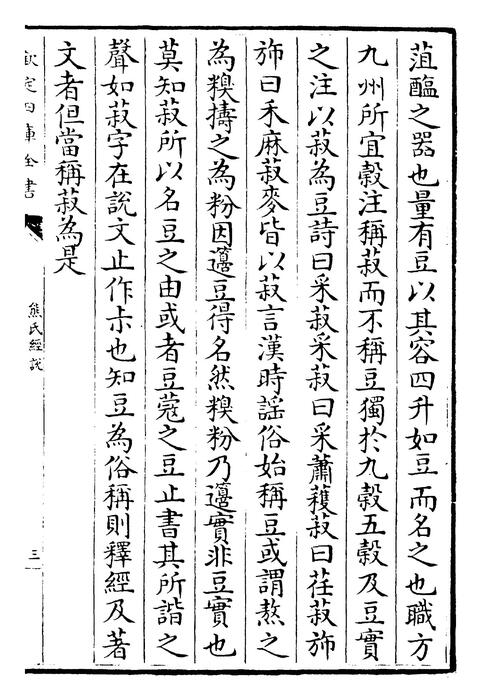 菹醢之器也量有豆以其容四升如豆而名之也職方
九州所宜穀注稱菽而不稱豆獨於九穀五穀及豆實
之注以菽為豆詩曰采菽采菽曰采蕭穫菽曰荏菽斾
斾曰禾麻菽麥皆以菽言漢時謡俗始稱豆或謂熬之
為糗擣之為粉因籩豆得名然糗粉乃籩實非豆實也
莫知菽所以名豆之由或者豆蔻之豆止書其所諧之
聲如菽字在說文止作尗也知豆為俗稱則釋經及著
文者但當稱菽為是
欽定四庫全書
熊氏經說
三